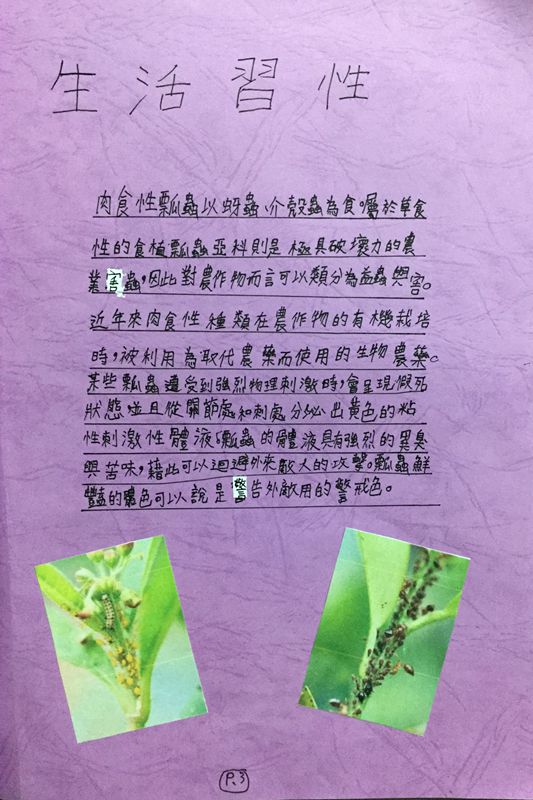 生活習性
肉食性瓢蟲以蚜蟲、介殼蟲為食。屬於草食
性的食植瓢蟲亞科則是極具破壞力的農
業害蟲，因此對農作物而言可以類分為益蟲與害。
近年來肉食性種類在農作物的有機栽培
時，被利用為取代農藥而使用的生物農藥。
某些瓢蟲遭受到強烈物理刺激時，會呈現假死
狀態並且從關節處和刺處分泌出黃色的粘
性刺激性體液。瓢蟲的體液具有強烈的異臭
與苦味，藉此可以迴避外來敵人的攻擊。瓢蟲鮮
豔的體色可以說是警告外敵用的警戒色。
P.3